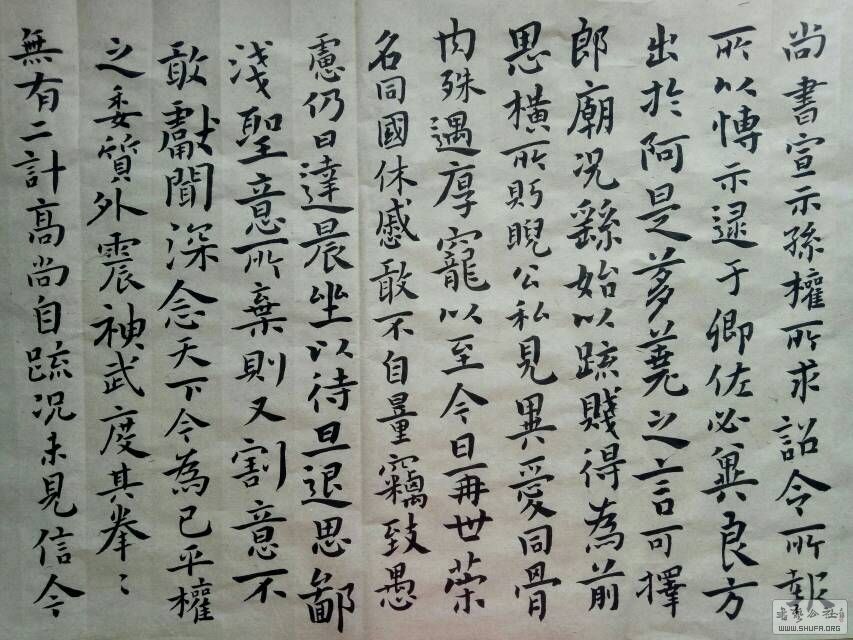 尚書宣示孫權所求詔令所報
所以博示逮于卿佐必冀良方
出於阿是芻蕘之言可擇
郎廟況繇始以疏賤得為前
恩橫所眄睨公私見異愛同骨
肉殊遇厚寵以至今日再世榮
名同國休慼敢不自量竊致愚
慮仍日達晨坐以待旦退思鄙
淺聖意所棄則又割意不
敢獻聞深念天下今為已平權
之委質外震神武度其拳〻
無有二計高尚自疏況未見信今
書藝公社
WWW.SHUFA.ORG